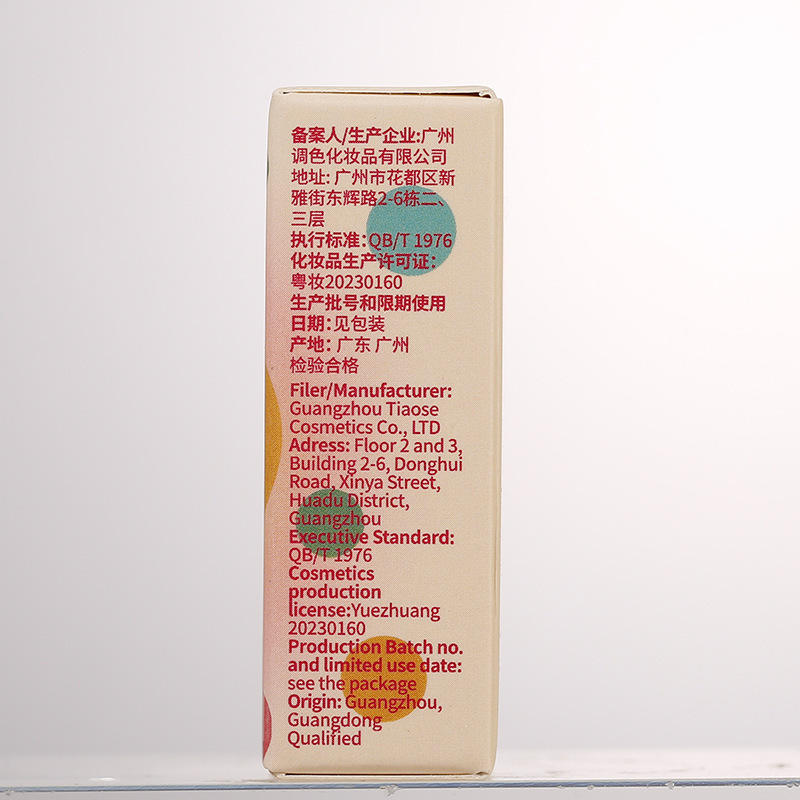 备案人/生产企业:广州
调色化妆品有限公司
地址: 广州市花都区新
雅街东辉路2-6栋二、
三层
执行标准:QB/T 1976
化妆品生产许可证:
粤妆20230160
生产批号和限期使用
日期:见包装
产地: 广东 广州
检验合格
Filer/Manufacturer:
Guangzhou Tiaose
Cosmetics Co., LTD
Adress: Floor 2 and 3,
Building 2-6, Donghui
Road, Xinya Street,
Huadu District,
Guangzhou
Executive Standard:
QB/T 1976
Cosmetics
production
license:Yuezhuang
20230160
Production Batch no.
and limited use date:
see the package
Origin: Guangzhou,
Guangdong
Qualified